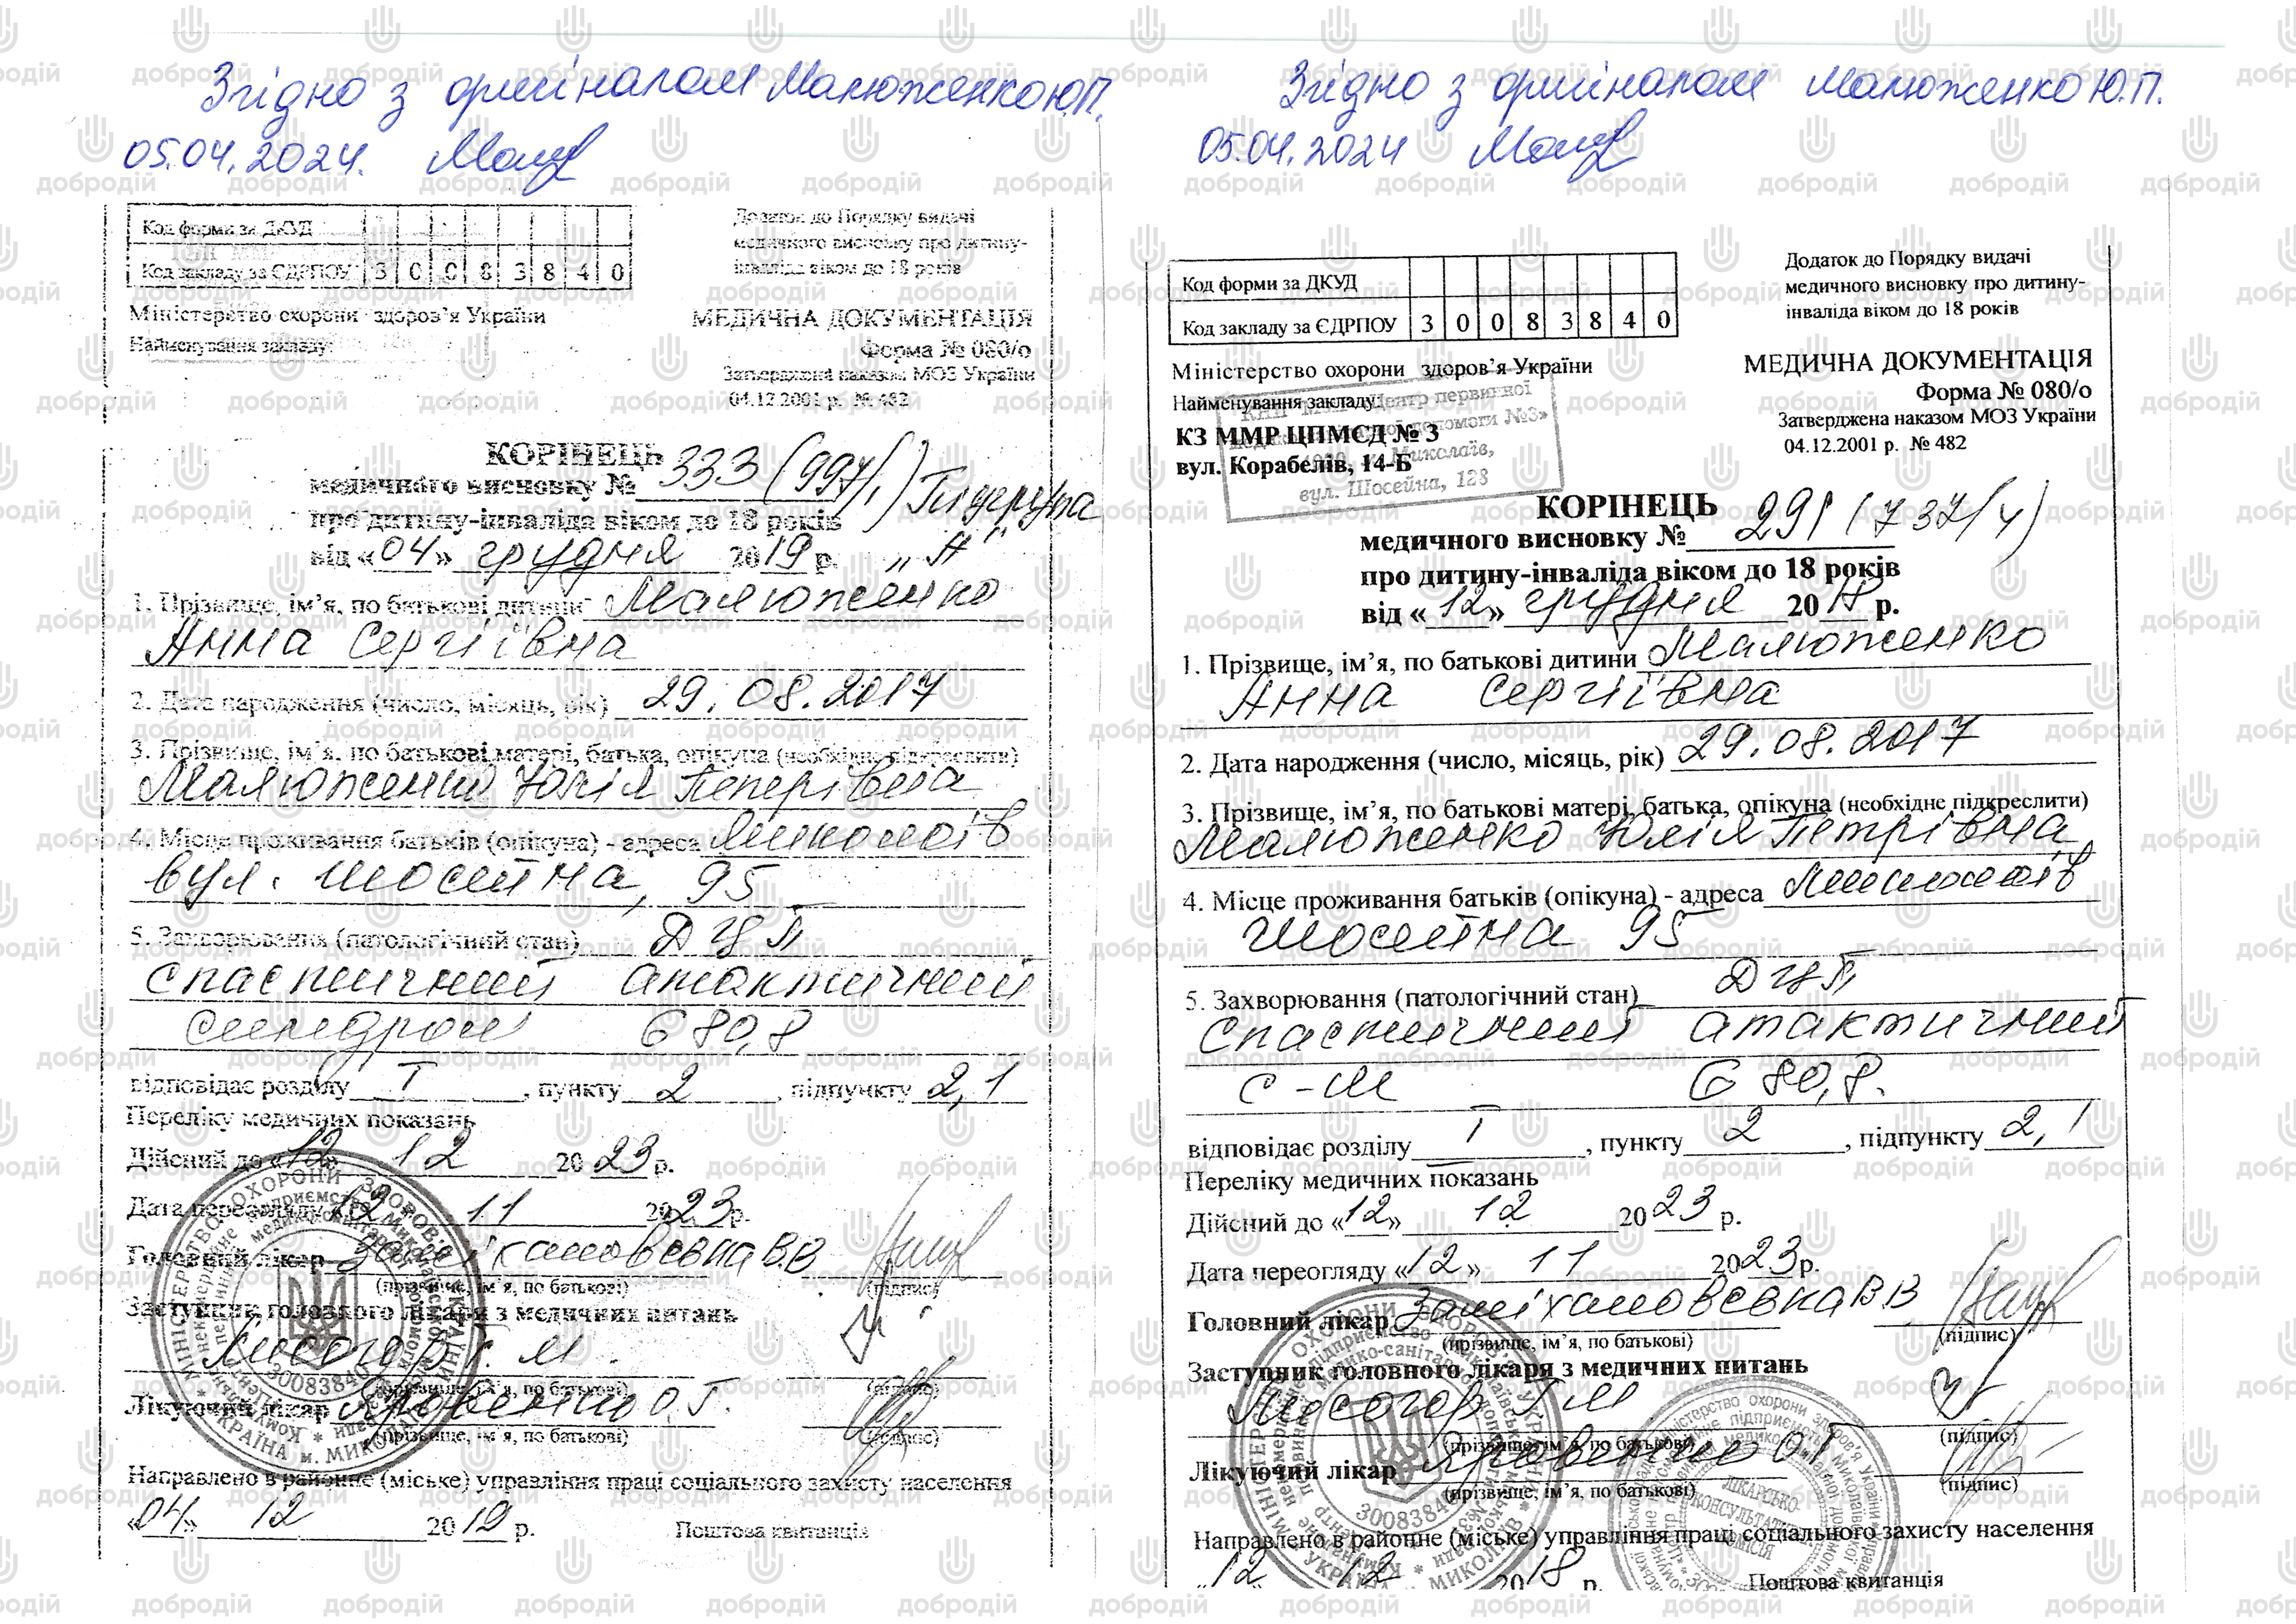 Згідно з оригіналом Малюженко Ю.П.
05.04.2024.
Код форми за ДКУД
Код закладу за ЄДРПОУ 3 0 0 8 3 8 4 0
Додаток до Порядку видачі
медичного висновку про дитину-
інваліда віком до 18 років
Міністерство охорони здоров'я України
Найменування закладу:
МЕДИЧНА ДОКУМЕНТАЦІЯ
Форма № 080/о
Затверджена наказом МОЗ України
04.12.2001 р. № 482
КОРІНЕЦЬ
медичного висновку № 333 (997/1)
про дитину-інваліда віком до 18 років
від «04» грудня 2019 р. „А"
1. Прізвище, ім'я, по батькові дитини Малюженко
Анна Сергіївна
2. Дата народження (число, місяць, рік) 29.08.2017
3. Прізвище, ім'я, по батькові матері, батька, опікуна (необхідне підкреслити)
Малюженко Юлія Петрівна
4. Місце проживання батьків (опікуна) - адреса Миколаїв
вул. Шосейна, 95
5. Захворювання (патологічний стан) ДЦП
спастичний атактичний
синдром G 80,8
відповідає розділу I, пункту 2, підпункту 2,1
Переліку медичних показань
Дійсний до «12» 12 2023 р.
Дата переогляду «12» 11 2023 р.
Головний лікар В.В
(прізвище, ім'я, по батькові) (підпис)
Заступник головного лікаря з медичних питань
Лисогор Г. М.
(прізвище, ім'я, по батькові) (підпис)
Лікуючий лікар Яровенко О.Г.
(прізвище, ім'я, по батькові) (підпис)
Направлено в районне (міське) управління праці соціального захисту населення
«04» 12 2019 р. Поштова квитанція
Згідно з оригіналом Малюженко Ю.П.
05.04.2024
Код форми за ДКУД
Код закладу за ЄДРПОУ 3 0 0 8 3 8 4 0
Додаток до Порядку видачі
медичного висновку про дитину-
інваліда віком до 18 років
Міністерство охорони здоров'я України
Найменування закладу:
КЗ ММР ЦПМСД № 3
вул. Корабелів, 14-Б
вул. Шосейна, 128
МЕДИЧНА ДОКУМЕНТАЦІЯ
Форма № 080/о
Затверджена наказом МОЗ України
04.12.2001 р. № 482
КОРІНЕЦЬ
медичного висновку № 291 (737/4)
про дитину-інваліда віком до 18 років
від «12» грудня 2018 р.
1. Прізвище, ім'я, по батькові дитини Малюженко
Анна Сергіївна
2. Дата народження (число, місяць, рік) 29.08.2017
3. Прізвище, ім'я, по батькові матері, батька, опікуна (необхідне підкреслити)
Малюженко Юлія Петрівна
4. Місце проживання батьків (опікуна) - адреса Миколаїв
Шосейна 95
5. Захворювання (патологічний стан) ДЦП
спастичний атактичний
с-м G 80,8.
відповідає розділу I, пункту 2, підпункту 2,1
Переліку медичних показань
Дійсний до «12» 12 2023 р.
Дата переогляду «12» 11 2023 р.
Головний лікар В.В
(прізвище, ім'я, по батькові) (підпис)
Заступник головного лікаря з медичних питань
Лисогор Г М
(прізвище, ім'я, по батькові) (підпис)
Лікуючий лікар Яровенко О Г
(прізвище, ім'я, по батькові) (підпис)
Направлено в районне (міське) управління праці соціального захисту населення
"12" 12 2018 р. Поштова квитанція
добродій